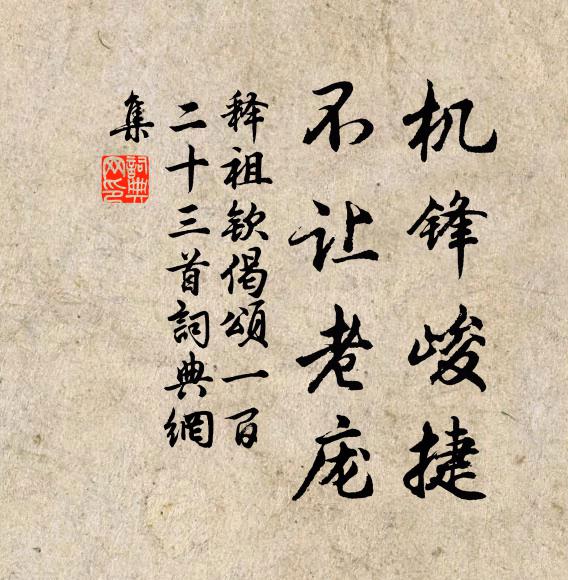 机锋峻捷
不让老庞
释祖钦偈頌一百
二十三首詞典網
集
詞典
网印